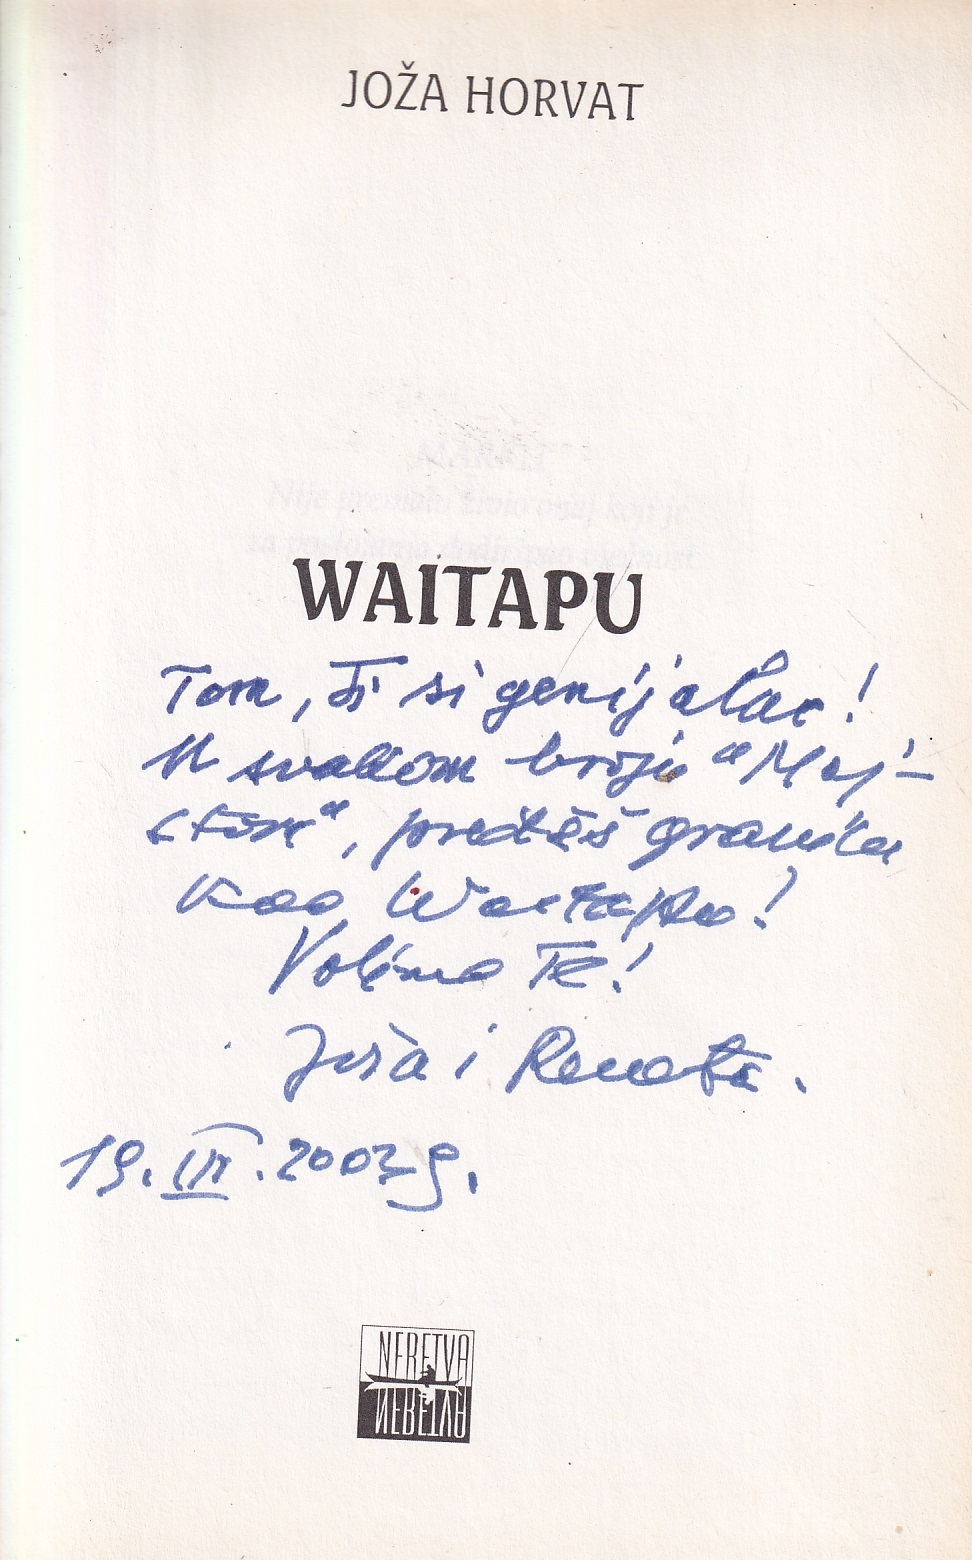 JOŽA HORVAT
Nije
WAITAPU
Tom, ti si genijalac!
U svakom broju "Maj-
stora", prećeš granicu
kao Waitapu!
Volimo Te!
i Renata.
19. III. 2002 g.
NERETVA
NERETVA